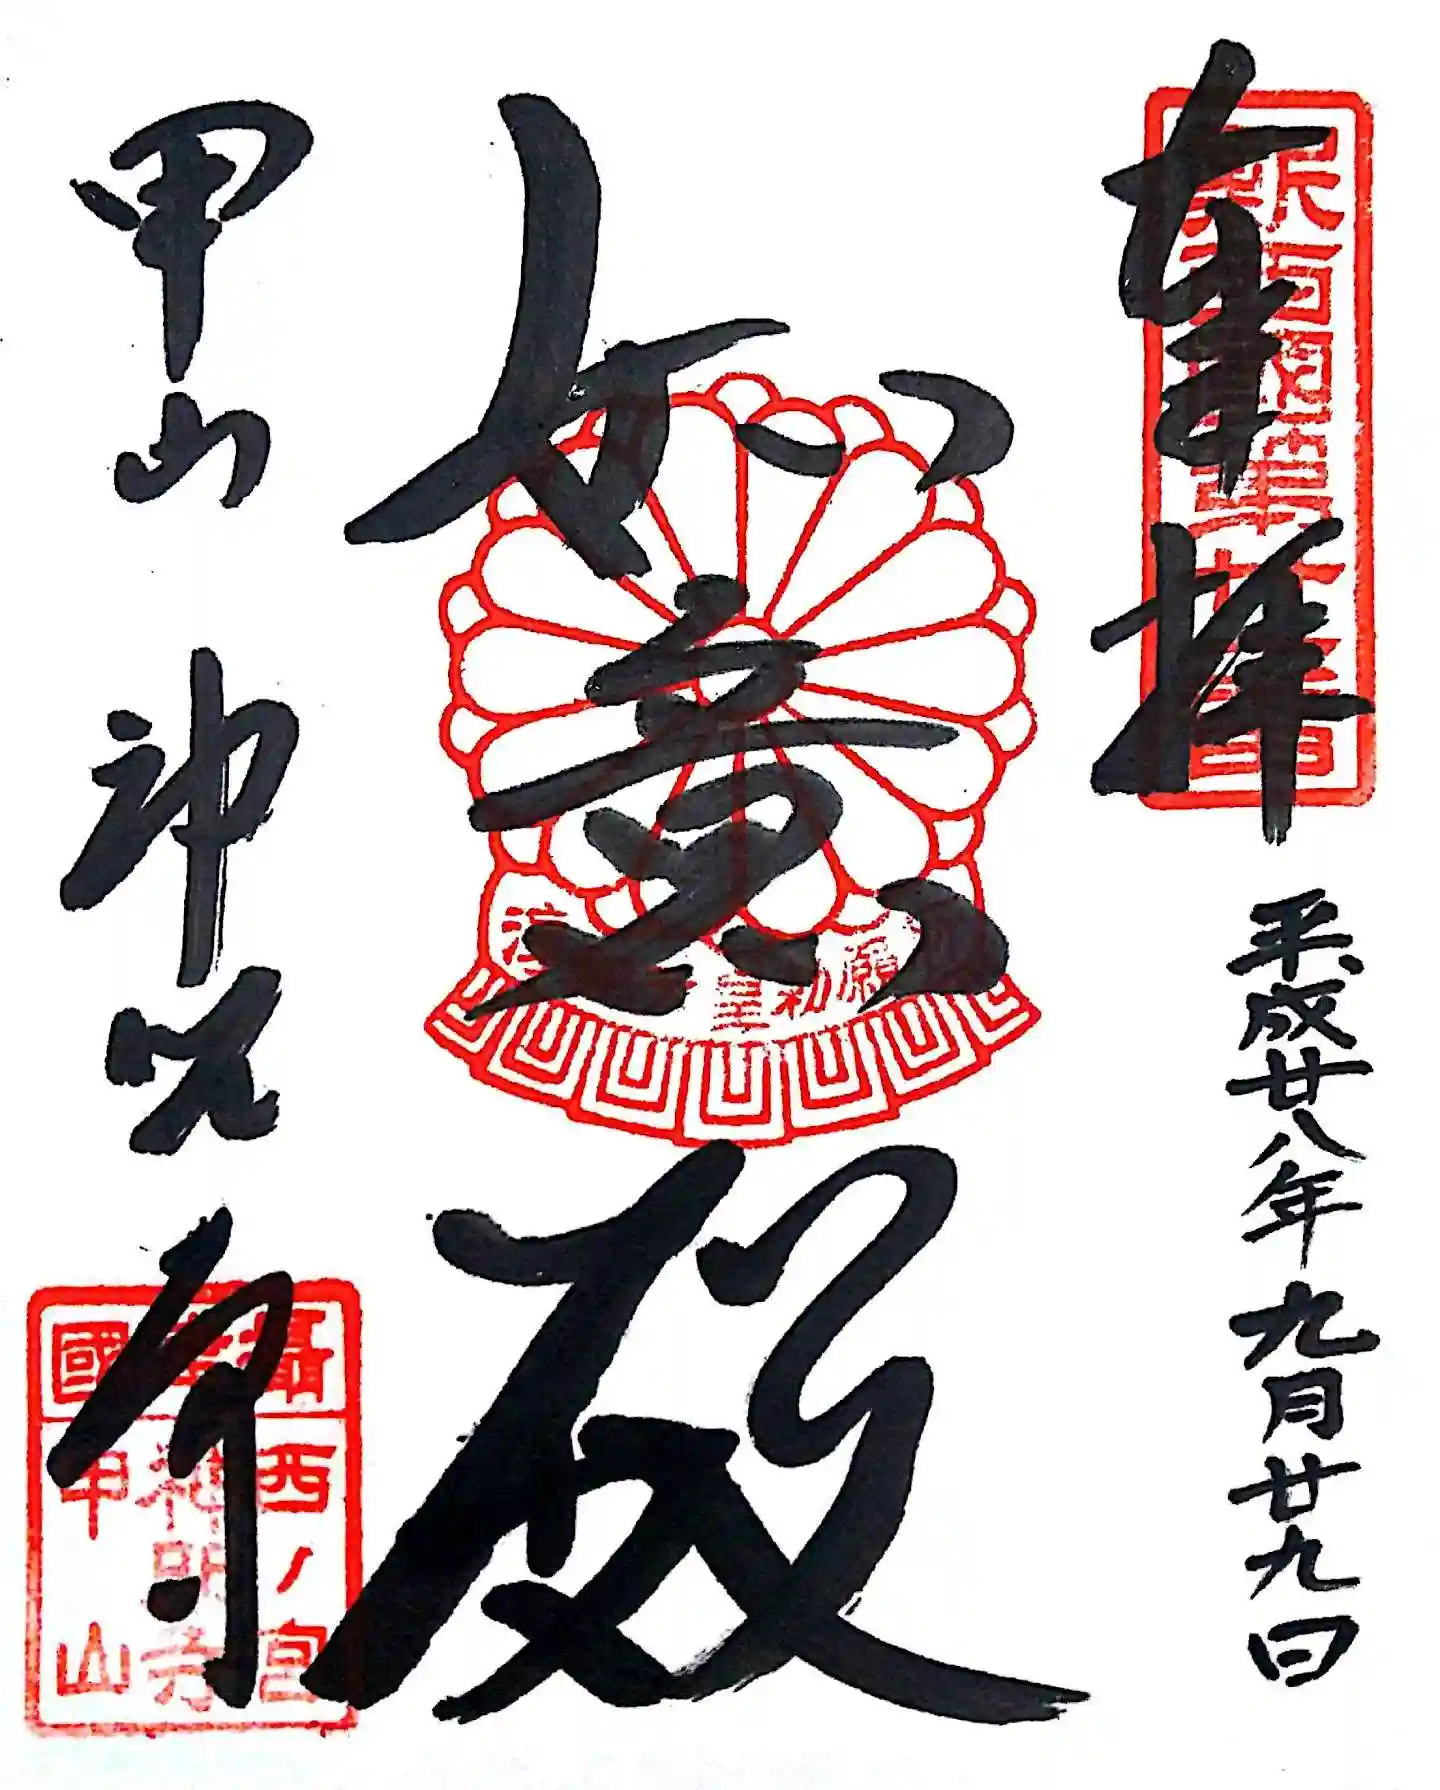 奉拝 平成廿八年九月廿九日
如意殿
甲山 神呪寺
願
初
皇
淳
攝津國
西ノ宮
神呪寺
甲山